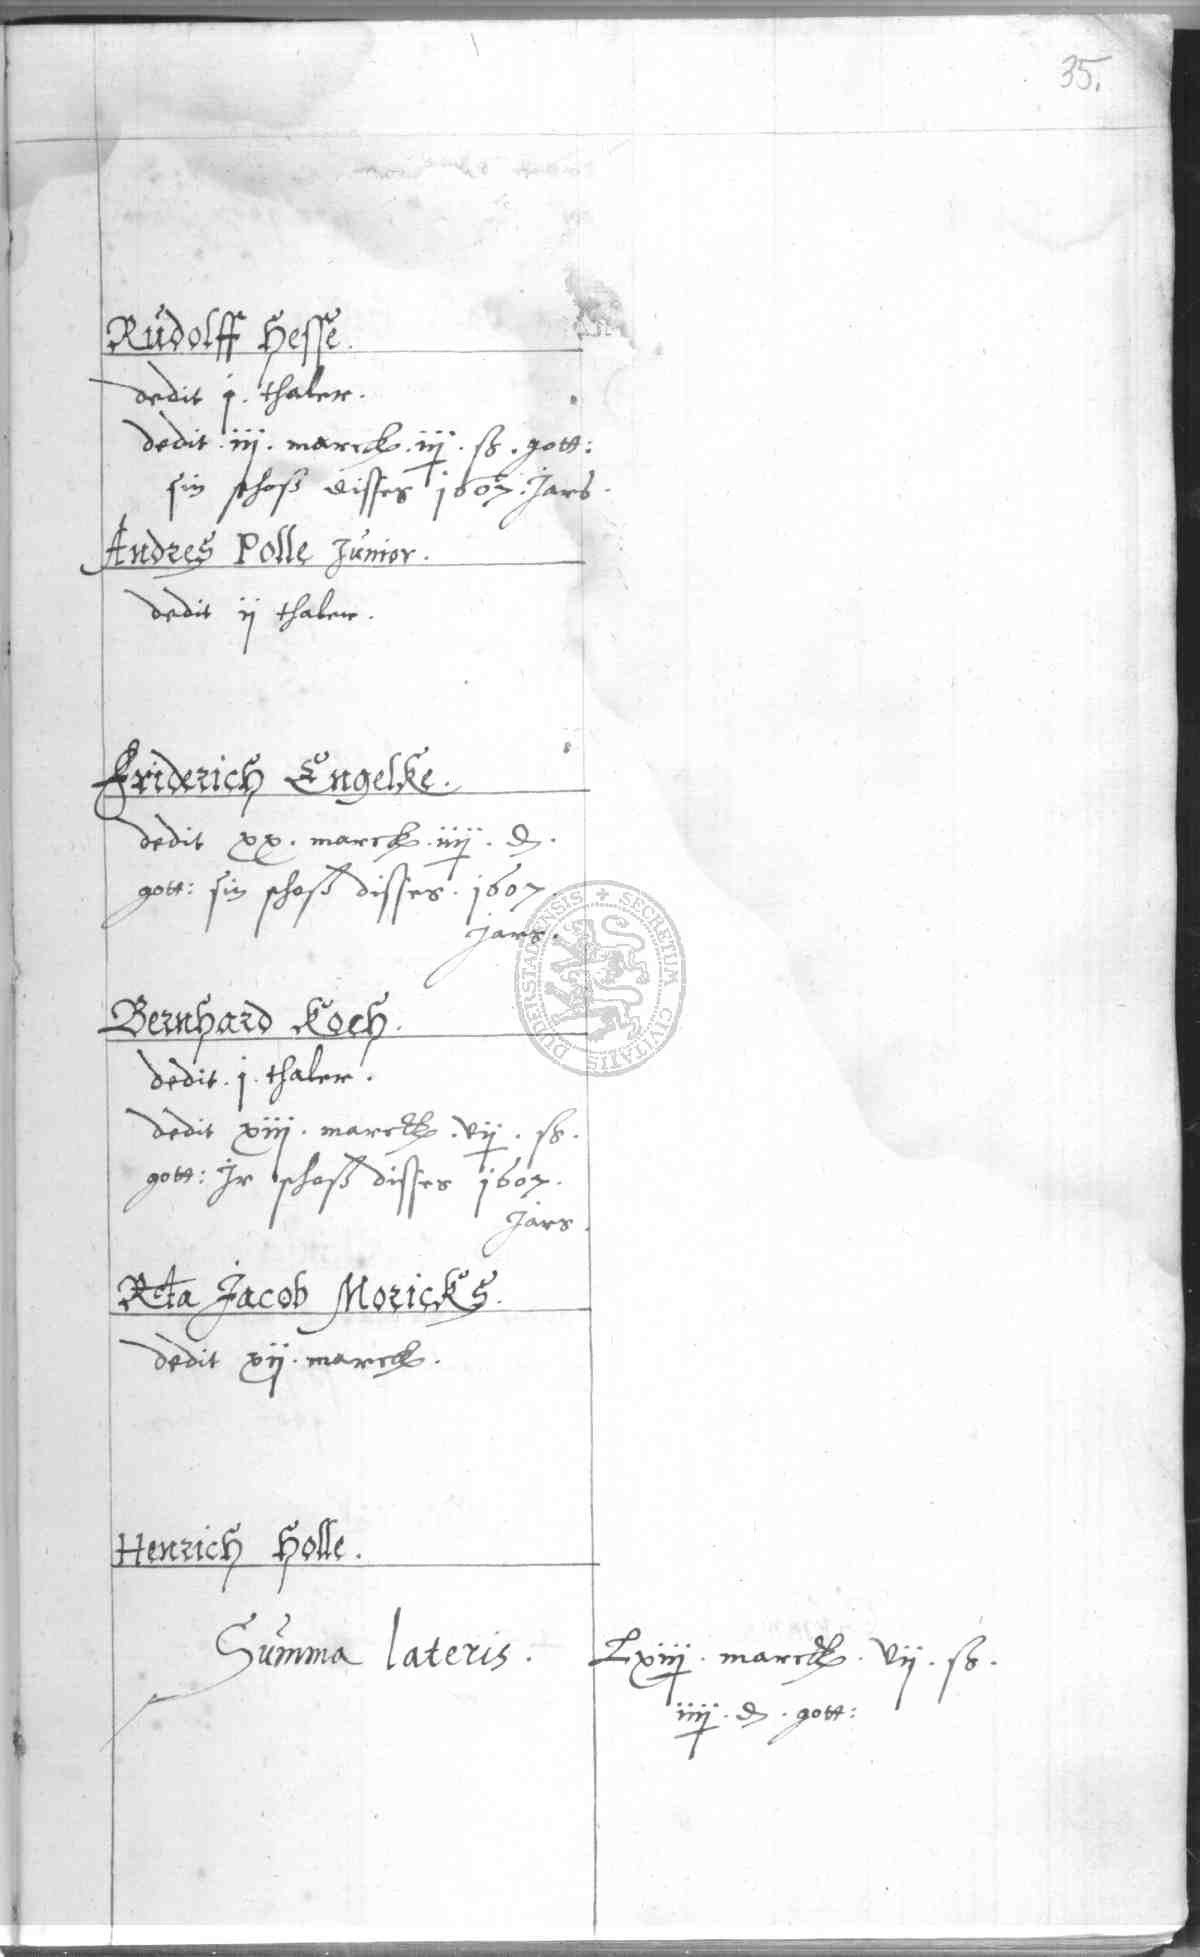 35.
Rudolff Hesse.
dedit j. thaler.
dedit. iij. marck. iij. ß. gott:
sin schoß disses 1607. Jars.
Andres Polle Junior.
dedit ij thaler.
Friderich Engelke.
dedit xx. marck. iiij. d.
gott: sin schoß disses. 1607.
Jars.
Bernhard Koch.
dedit. j. thaler.
dedit xiij. marck. vij. ß.
gott: Jr schoß disses 1607.
Jars.
Rta Jacob Moricks.
dedit xij. marck.
Henrich Holle.
Summa lateris. Lxiij. marck. vij. ß.
iiij. d. gott:
DUDERSTADENSIS + SECRETUM CIVITATIS